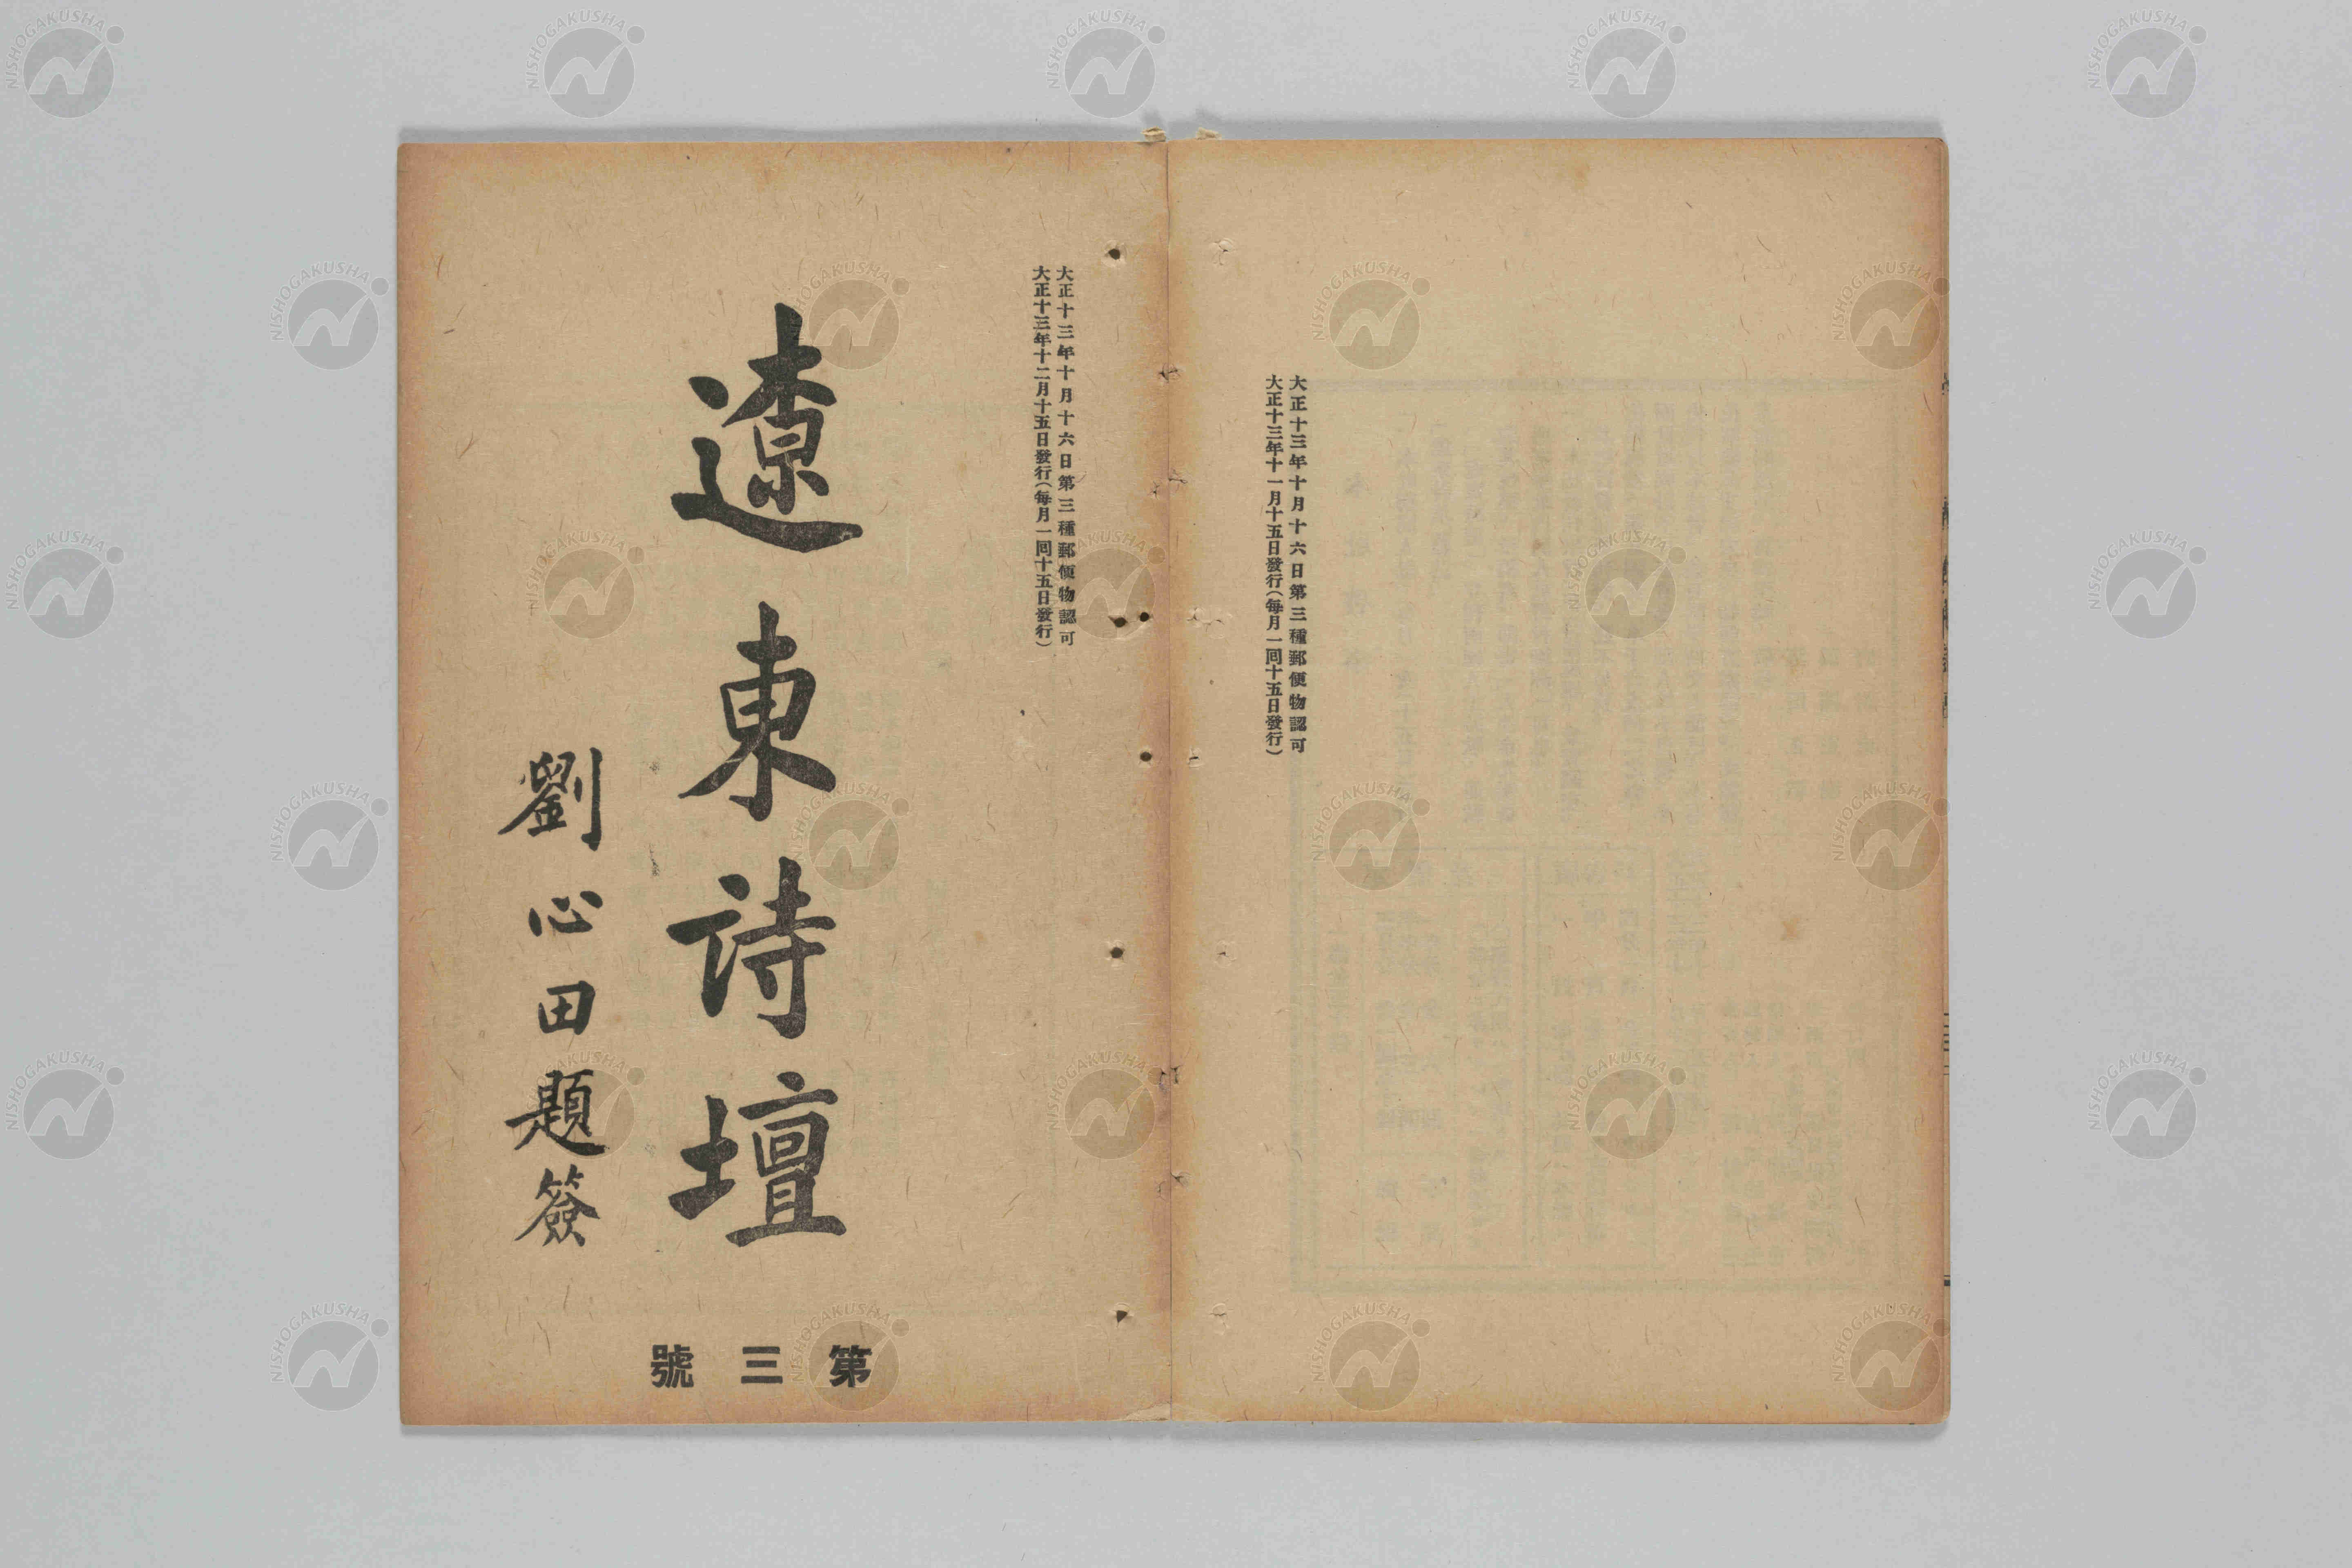 大正十三年十月十六日第三種郵便物認可
大正十三年十一月十五日發行(每月一回十五日發行)
大正十三年十月十六日第三種郵便物認可
大正十三年十二月十五日發行(每月一回十五日發行)
遼東詩壇
劉心田題簽
第三號
NISHOGAKUSHA